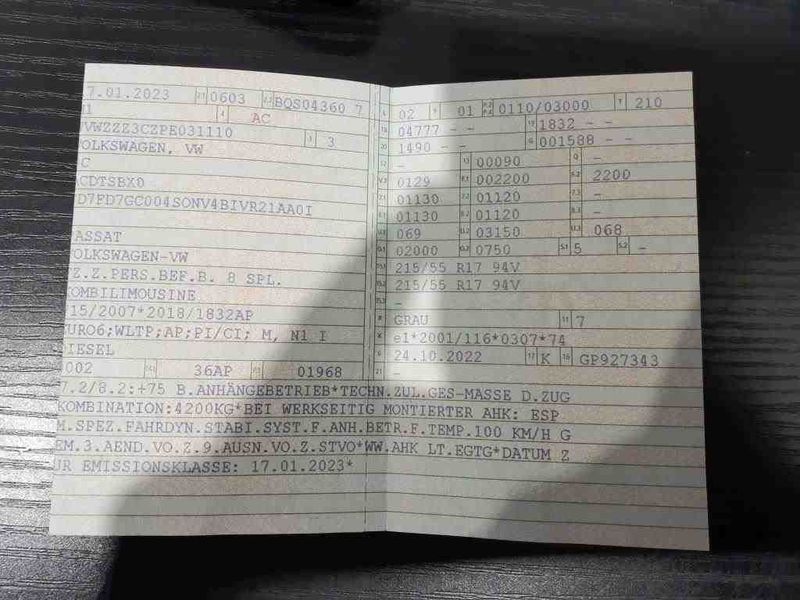 7.01.2023 2.1 0603 2.2 BQS04360 7
01 J AC
VWZZZ3CZPE031110 3 3
OLKSWAGEN, VW
C
CDTSBX0
D7FD7GC004SONV4BIVR21AA0I
ASSAT
OLKSWAGEN-VW
Z.Z.PERS.BEF.B. 8 SPL.
OMBILIMOUSINE
15/2007*2018/1832AP
URO6;WLTP;AP;PI/CI; M, N1 I
IESEL
002 14.1 36AP V.7 01968
L 02 9 01 P.2 P.4 0110/03000 T 210
18 04777 - - 19 1832 - -
20 1490 - - G 001588 - -
12 - 13 00090 Q -
V.7 0129 F.1 002200 F.2 2200
7.1 01130 7.2 01120 7.3 -
8.1 01130 8.2 01120 8.3 -
U.1 069 U.2 03150 U.3 068
O.1 02000 O.2 0750 S.1 5 S.2 -
15.1 215/55 R17 94V
15.2 215/55 R17 94V
15.3 -
R GRAU 11 7
K e1*2001/116*0307*74
6 24.10.2022 17 K 16 GP927343
21 -
7.2/8.2:+75 B.ANHÄNGEBETRIEB*TECHN.ZUL.GES-MASSE D.ZUG
KOMBINATION:4200KG*BEI WERKSEITIG MONTIERTER AHK: ESP
M.SPEZ.FAHRDYN.STABI.SYST.F.ANH.BETR.F.TEMP.100 KM/H G
EM.3.AEND.VO.Z.9.AUSN.VO.Z.STVO*WW.AHK LT.EGTG*DATUM Z
UR EMISSIONSKLASSE: 17.01.2023*